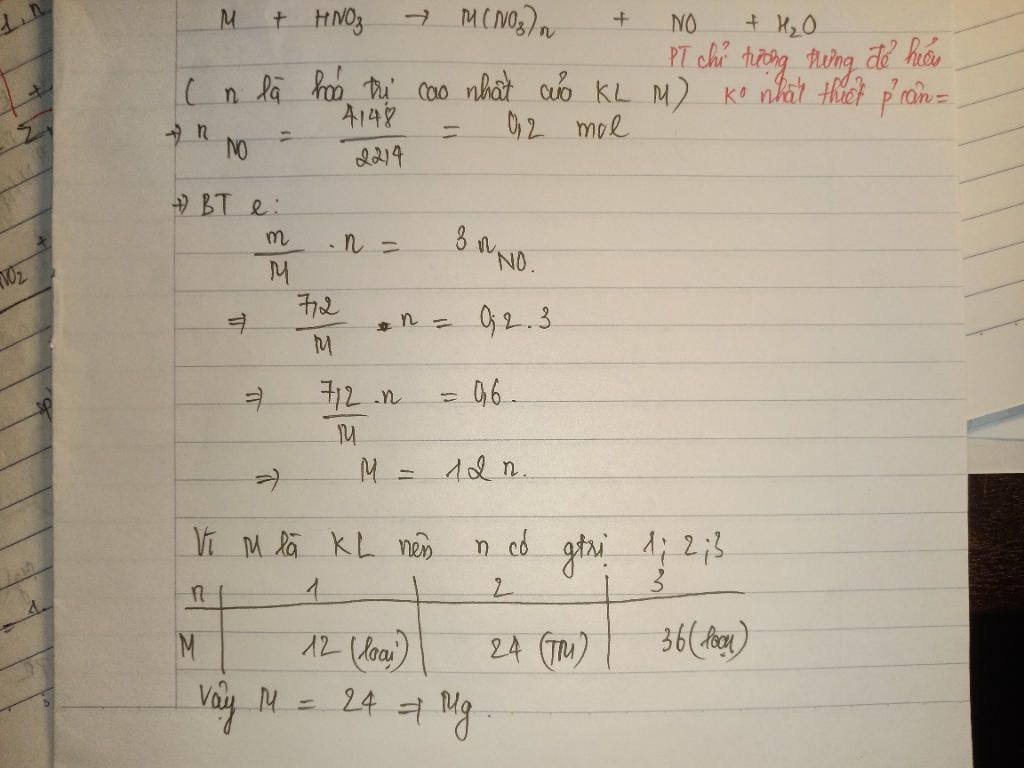 M + HNO3 → M(NO3)n + NO + H2O
PT chỉ tượng trưng để hiểu
(n là hoá trị cao nhất của KL M) Ko nhất thiết p' cân =
→ n NO = 4,48 / 22,4 = 0,2 mol
→ BT e:
m/M . n = 3 n NO.
⇒ 7,2/M . n = 0,2.3
⇒ 7,2/M .n = 0,6.
⇒ M = 12 n.
Vì M là KL nên n có gtrị 1; 2; 3
n 1 2 3
M 12 (loại) 24 (TM) 36 (loại)
Vậy M = 24 ⇒ Mg.